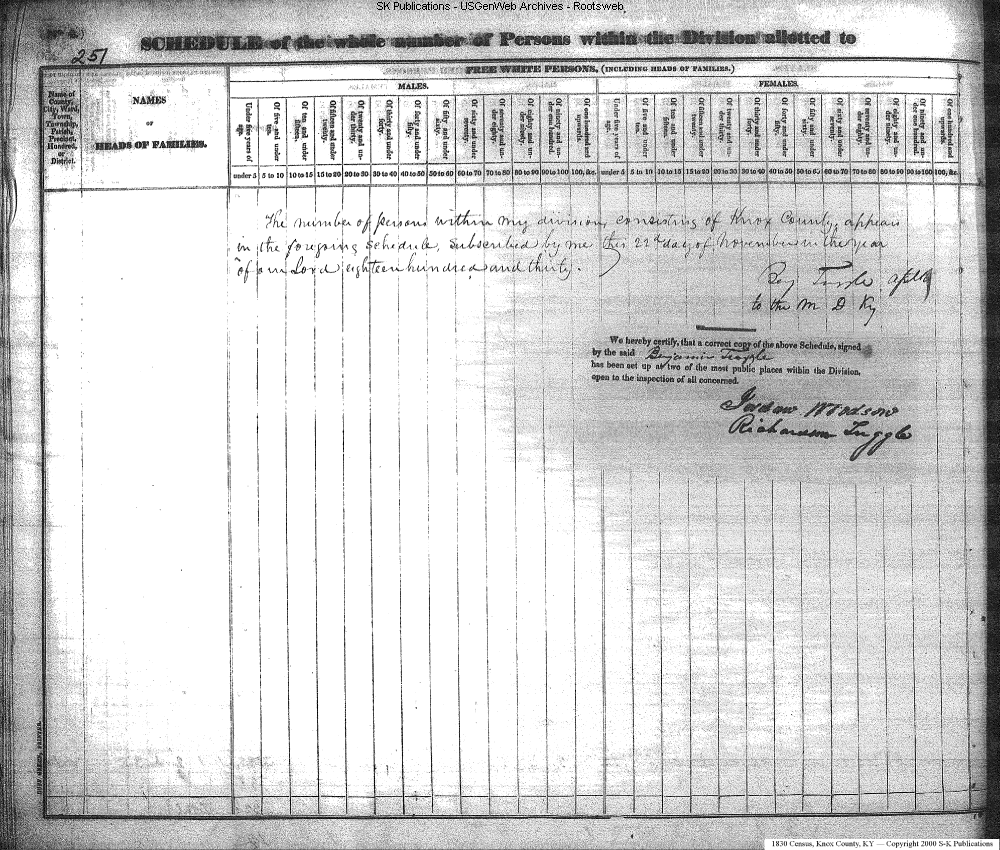 SK Publications - USGenWeb Archives - Rootsweb
251
SCHEDULE of the whole number of Persons within the Division allotted to
FREE WHITE PERSONS, (INCLUDING HEADS OF FAMILIES.)
MALES.
FEMALES.
Name of County, City, Ward, Town, Township, Parish, Precinct, Hundred, or District.
NAMES
OF
HEADS OF FAMILIES.
Under five years of age.
Of five and under ten.
Of ten and under fifteen.
Of fifteen and under twenty.
Of twenty and under thirty.
Of thirty and under forty.
Of forty and under fifty.
Of fifty and under sixty.
Of sixty and under seventy.
Of seventy and under eighty.
Of eighty and under ninety.
Of ninety and under one hundred.
Of one hundred and upwards.
Under five years of age.
Of five and under ten.
Of ten and under fifteen.
Of fifteen and under twenty.
Of twenty and under thirty.
Of thirty and under forty.
Of forty and under fifty.
Of fifty and under sixty.
Of sixty and under seventy.
Of seventy and under eighty.
Of eighty and under ninety.
Of ninety and under one hundred.
Of one hundred and upwards.
under 5 5 to 10 10 to 15 15 to 20 20 to 30 30 to 40 40 to 50 50 to 60 60 to 70 70 to 80 80 to 90 90 to 100 100, &c. under 5 5 to 10 10 to 15 15 to 20 20 to 30 30 to 40 40 to 50 50 to 60 60 to 70 70 to 80 80 to 90 90 to 100 100, &c.
The number of persons within my division, consisting of Knox County, appears
in the foregoing Schedule, subscribed by me this 22d day of November in the year
of our Lord eighteen hundred and thirty.
Benj Tuggle
to the M D Ky
We hereby certify, that a correct copy of the above Schedule, signed
by the said Benjamin Tuggle
has been set up at two of the most public places within the Division,
open to the inspection of all concerned.
Jordan Woodson
Richardson Tuggle
1830 Census, Knox County, KY — Copyright 2000 S-K Publications